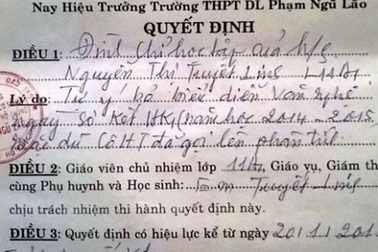 Nay Hiệu Trưởng Trường THPT DL Phạm Ngũ Lão
QUYẾT ĐỊNH
ĐIỀU 1: Đình chỉ học tập của h/s
Nguyễn Thị Tuyết Linh 11A1
Lý do: Tự ý bỏ biểu diễn Văn nghệ
ngày sơ kết HKI (năm học 2014 - 2015
mặc dù Cô HT đã gọi lên phân tích
ĐIỀU 2: Giáo viên chủ nhiệm lớp 11A1, Giáo vụ, Giám th
cùng Phụ huynh và Học sinh: Em Tuyết Linh
chịu trách nhiệm thi hành quyết định này.
ĐIỀU 3: Quyết định có hiệu lực kể từ ngày